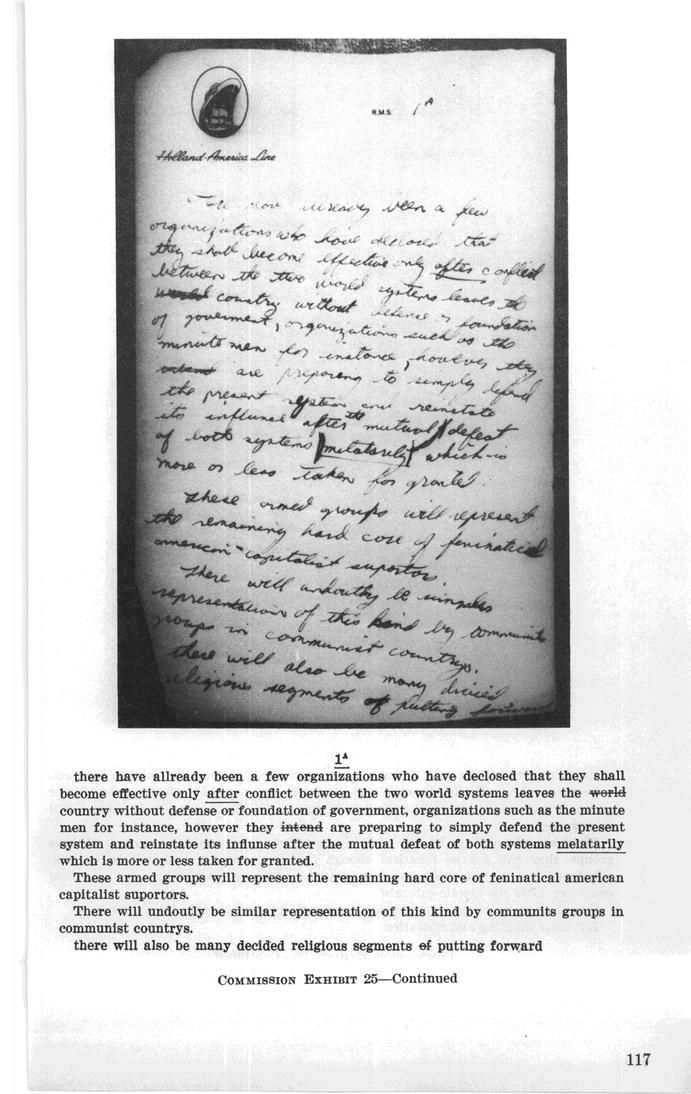 R.M.S. 1 A
Holland-America Line
already been a few
organizations who have declosed that
they shall become effective only after conflict
between the two world systems leaves the
world country without defense or foundation
of goverment, organizations such as the
minute men for instance, however they
intend are preparing to simply defend
the present system and reinstate
its influnse after the mutual defeat
of both systems melatarily which is
more or less taken for granted.
These armed groups will represent
the remaining hard core of feninatical
american capitalist suportors.
There will undoutly be
representation of this kind by communits
groups in communist countrys.
there will also be many
religious segments of putting forward
1A
there have allready been a few organizations who have declosed that they shall
become effective only after conflict between the two world systems leaves the world
country without defense or foundation of government, organizations such as the minute
men for instance, however they intend are preparing to simply defend the present
system and reinstate its influnse after the mutual defeat of both systems melatarily
which is more or less taken for granted.
These armed groups will represent the remaining hard core of feninatical american
capitalist suportors.
There will undoutly be similar representation of this kind by communits groups in
communist countrys.
there will also be many decided religious segments of putting forward
COMMISSION EXHIBIT 25—Continued
117